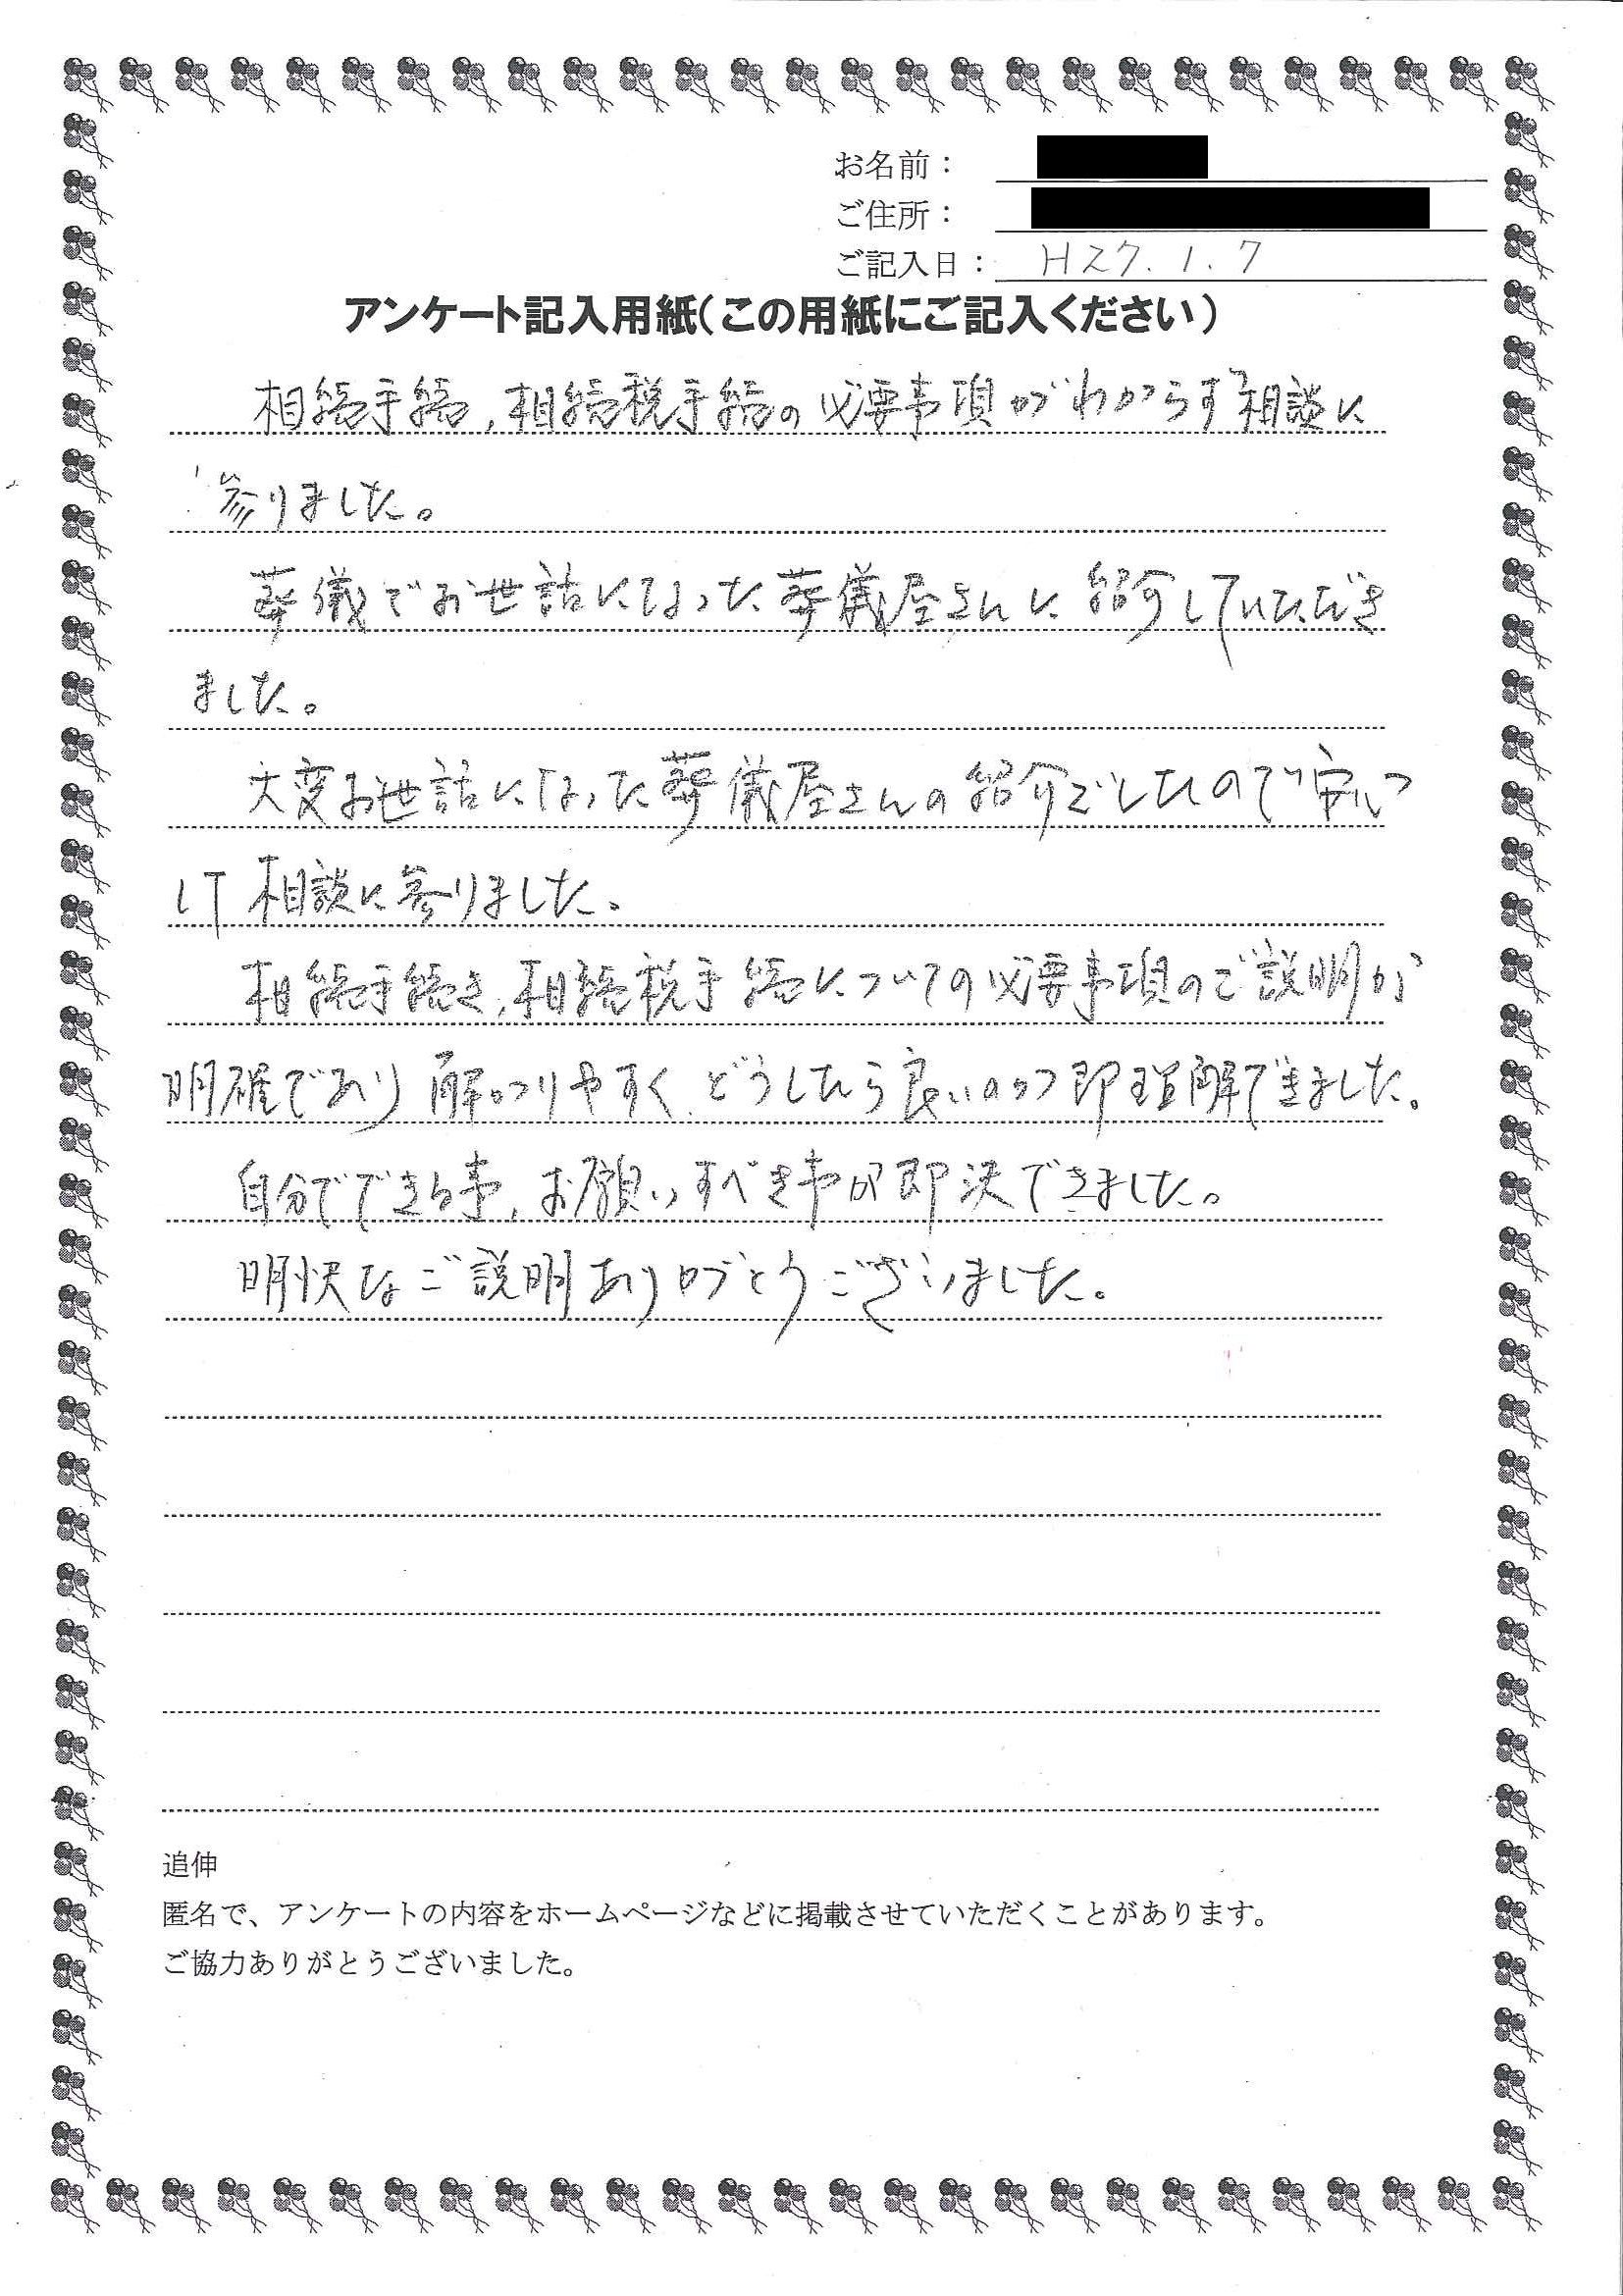 お名前：
ご住所：
ご記入日： H27.1.7
アンケート記入用紙（この用紙にご記入ください）
相続手続、相続税手続の必要事項がわからず相談に
参りました。
葬儀でお世話になった葬儀屋さんに紹介していただき
ました。
大変お世話になった葬儀屋さんの紹介でしたので安心
して相談に参りました。
相続手続き、相続税手続についての必要事項のご説明が
明確であり解かりやすく、どうしたら良いのか即理解できました。
自分でできる事、お願いすべき事が即決できました。
明快なご説明ありがとうございました。
追伸
匿名で、アンケートの内容をホームページなどに掲載させていただくことがあります。
ご協力ありがとうございました。